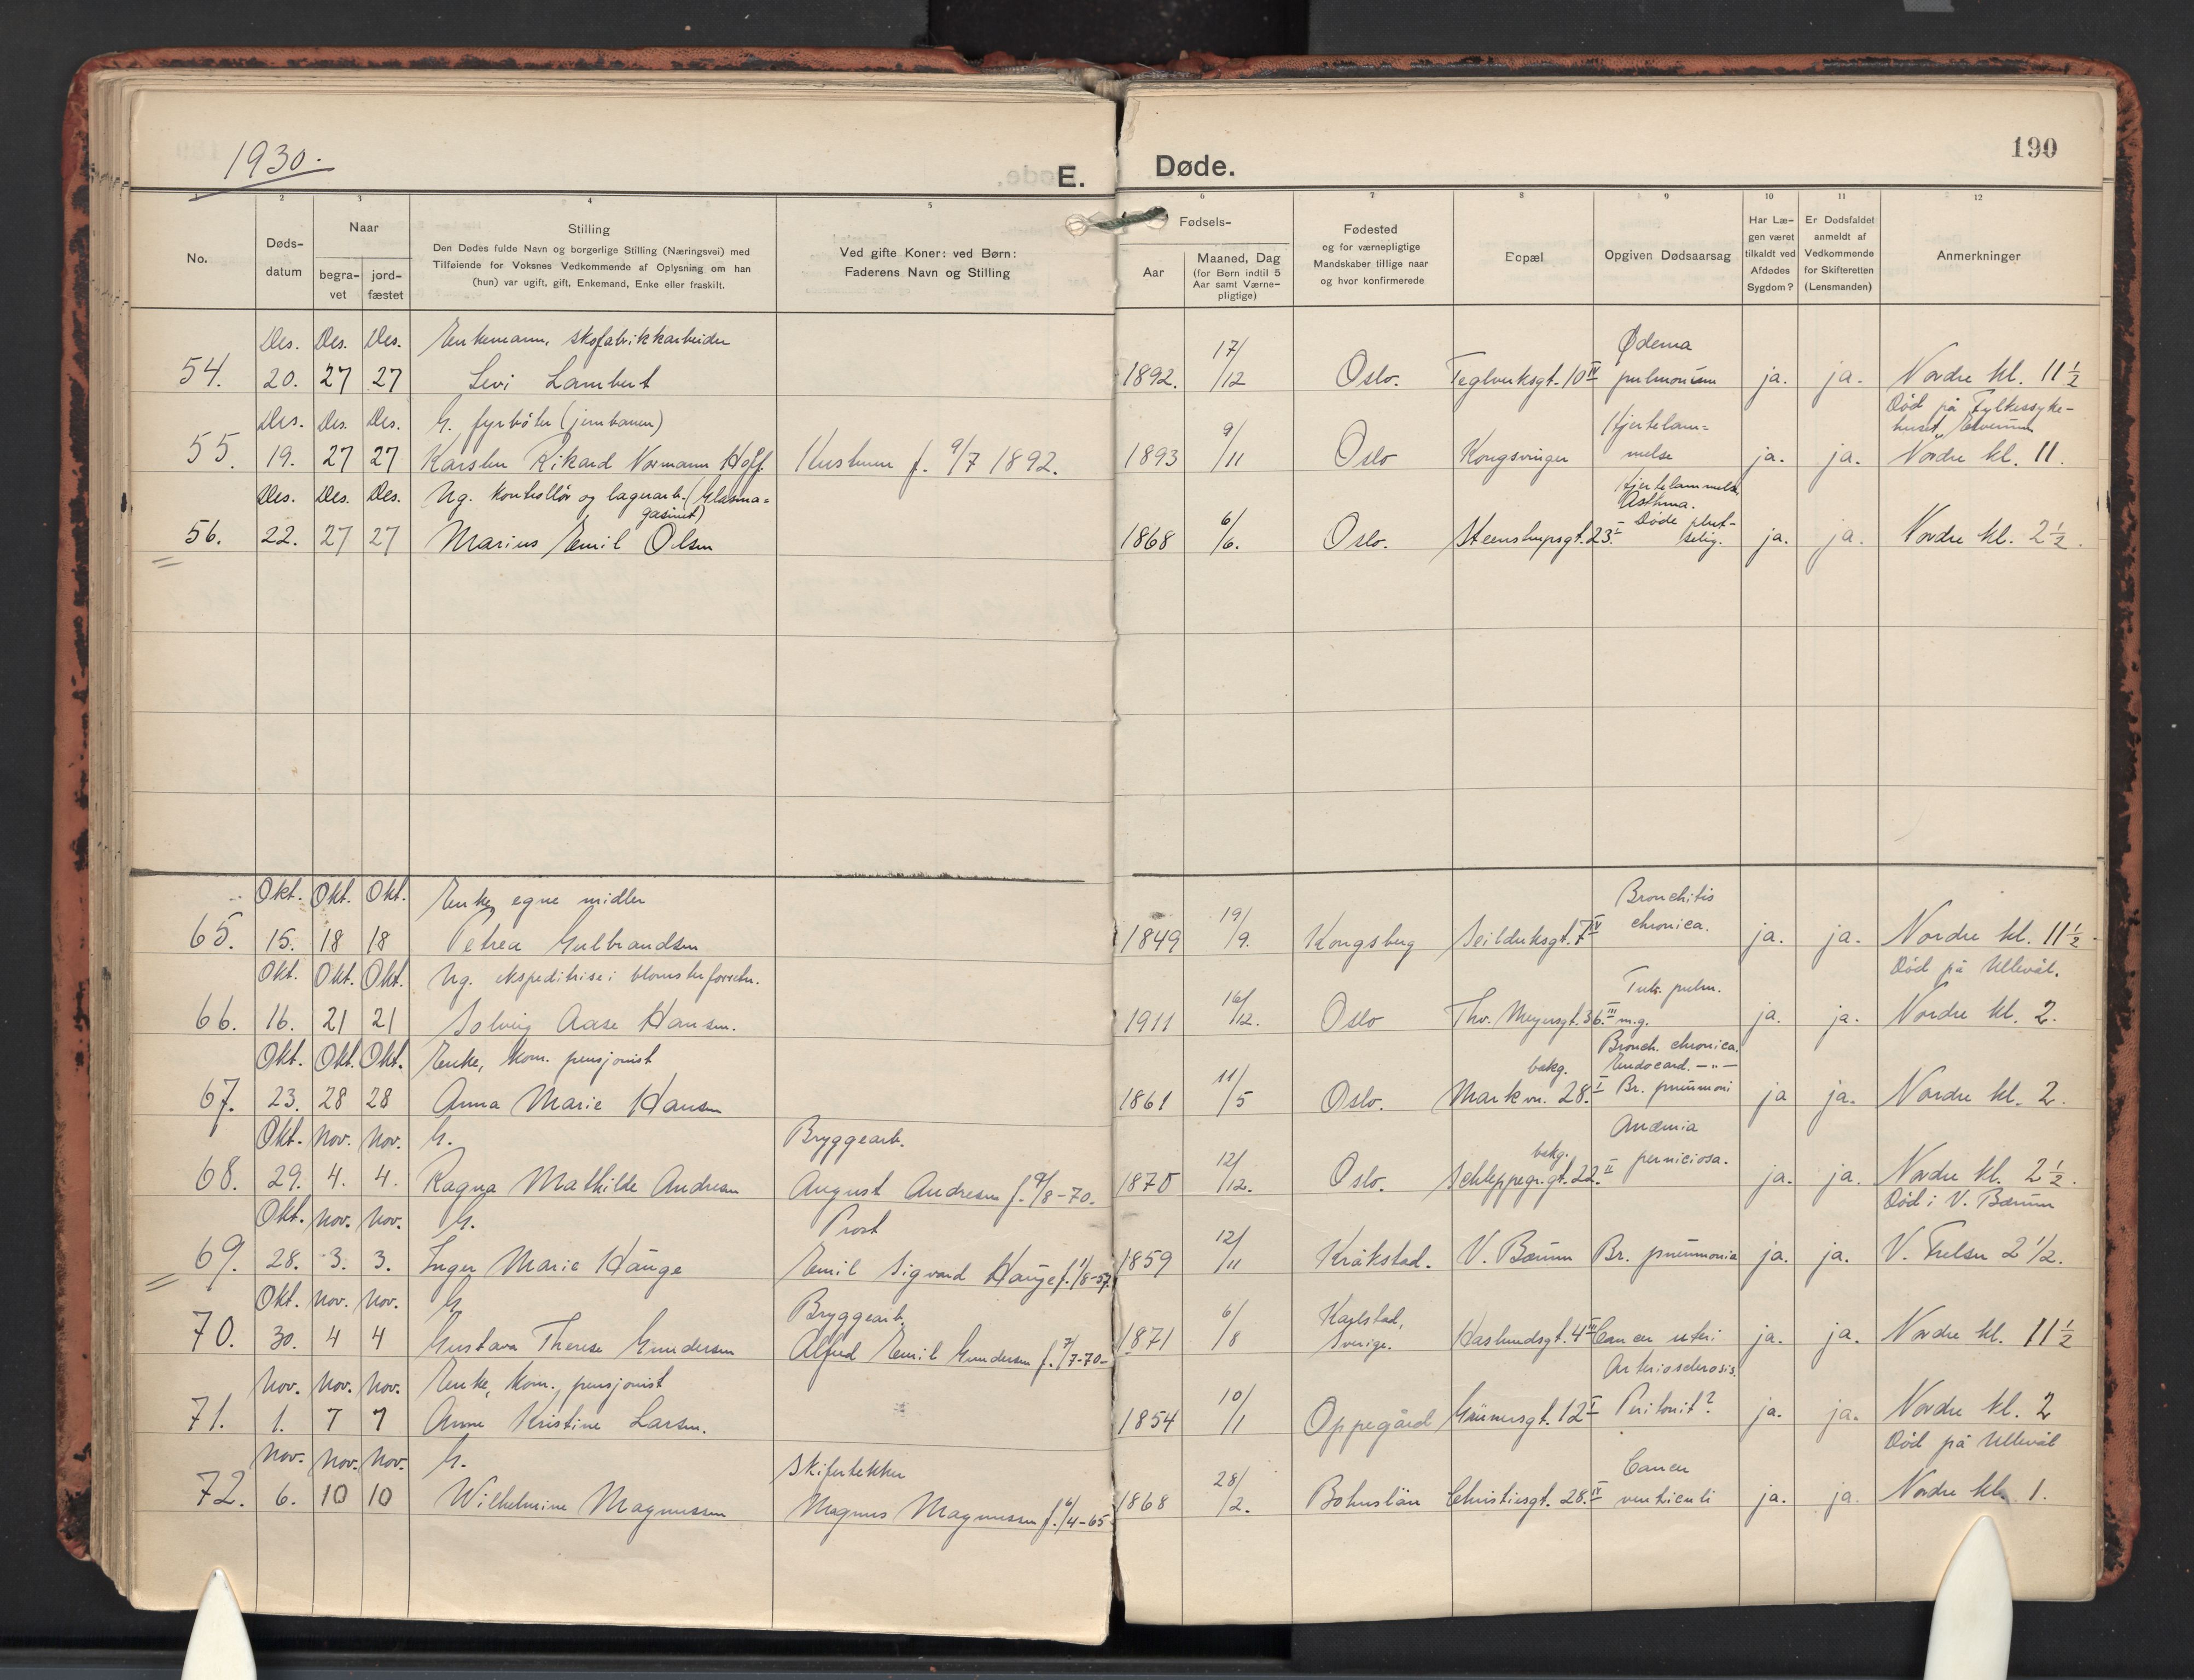 1930.
E.
Døde.
190
1
2
3
4
5
6
7
8
9
10
11
12
No.
Døds-
datum
Naar
begra-
vet
jord-
fæstet
Stilling
Den Dødes fulde Navn og borgerlige Stilling (Næringsvei) med
Tilføiende for Voksnes Vedkommende af Oplysning om han
(hun) var ugift, gift, Enkemand, Enke eller fraskilt.
Ved gifte Koner: ved Børn:
Faderens Navn og Stilling
Fødsels-
Aar
Maaned, Dag
(for Børn indtil 5
Aar samt Værne-
pligtige)
Fødested
og for værnepligtige
Mandskaber tillige naar
og hvor konfirmerede
Bopæl
Opgiven Dødsaarsag
Har Læ-
gen været
tilkaldt ved
Afdødes
Sygdom?
Er Dødsfaldet
anmeldt af
Vedkommende
for Skifteretten
(Lensmanden)
Anmerkninger
Des. Des. Des. Enkemann, skofabrikkarbeider
Ødema
54. 20. 27 27 Levi Lambert 1892. 17/12 Oslo. Teglverksgt. 10 IV pulmonum ja. ja. Nordre kl. 11 1/2
Des. Des. Des. G. fyrbøter (jernbanen)
Hjertelam=
Død på Fylkessyke-
huset, Elverum
55. 19. 27 27 Karsten Rikard Normann Hoff. Hustruen f. 9/7 1892. 1893 9/11 Oslo Kongsvinger melse ja. ja. Nordre kl. 11.
Des. Des. Des. Ug. kontrollør og lagerarb. (Glasma=
gasinet)
Hjertelammelse
Asthma.
Døde plut-
56. 22. 27 27 Marius Emil Olsen 1868 6/6. Oslo. Steenstrupsgt. 23 I selig. ja. ja. Nordre kl. 2 1/2.
Okt. Okt. Okt. Enke, egne midler
Bronchitis
chronica.
65. 15. 18 18 Petrea Gulbrandsen 1849 19/9. Kongsberg Seilduksgt. 7 IV ja. ja. Nordre kl. 11 1/2
Okt. Okt. Okt. Ug. ekspeditrise i blomsterforretn.
Tub. pulm.
Død på Ullevål.
66. 16. 21 21 Solveig Aase Hansen. 1911 16/12. Oslo Thv. Meyersgt. 36. III m.g. ja. ja. Nordre kl. 2.
Okt. Okt. Okt. Enke, kom. pensjonist
Bronch. chronica.
bakg.
Endocard. -"-
67. 23. 28 28 Anna Marie Hansen 1861 11/5 Oslo. Markvn. 28. I Br. pneumoni ja ja. Nordre kl. 2.
Okt. Nov. Nov. G.
Bryggearb.
Anæmia
bakg.
perniciosa.
68. 29. 4. 4. Ragna Mathilde Andresen August Andresen f. 9/8-70. 1870 12/12. Oslo. Schleppegr.gt. 22. II ja. ja. Nordre kl. 2 1/2.
Okt. Nov. Nov. G.
Prost
Død i V. Bærum
69. 28. 3. 3. Inger Marie Hauge Emil Sigvard Hauge f. 1/8-57. 1859 12/11 Kråkstad. V. Bærum Br. pneumonia ja. ja. V. Frelser 2 1/2.
Okt. Nov. Nov. G.
Bryggearb.
Karlstad,
70. 30. 4 4 Gustava Therese Gundersen Alfred Emil Gundersen f. 7/7-70- 1871 6/8 Sverige. Haslundsgt. 4 III Cancer uteri ja. ja. Nordre kl. 11 1/2
Nov. Nov. Nov. Enke, kom. pensjonist
Arteriosclerosis.
71. 1. 7 7 Anne Kristine Larsen. 1854 10/1 Oppegård Grünersgt. 12 I Peritonit? ja. ja. Nordre kl. 2
Nov. Nov. Nov. G.
Skifertekker
Cancer
Død på Ullevål
72. 6. 10 10 Wilhelmine Magnussen Magnus Magnussen f. 6/4-65 1868 28/2. Bohuslän Christiesgt. 28. IV ventriculi ja. ja. Nordre kl. 1.